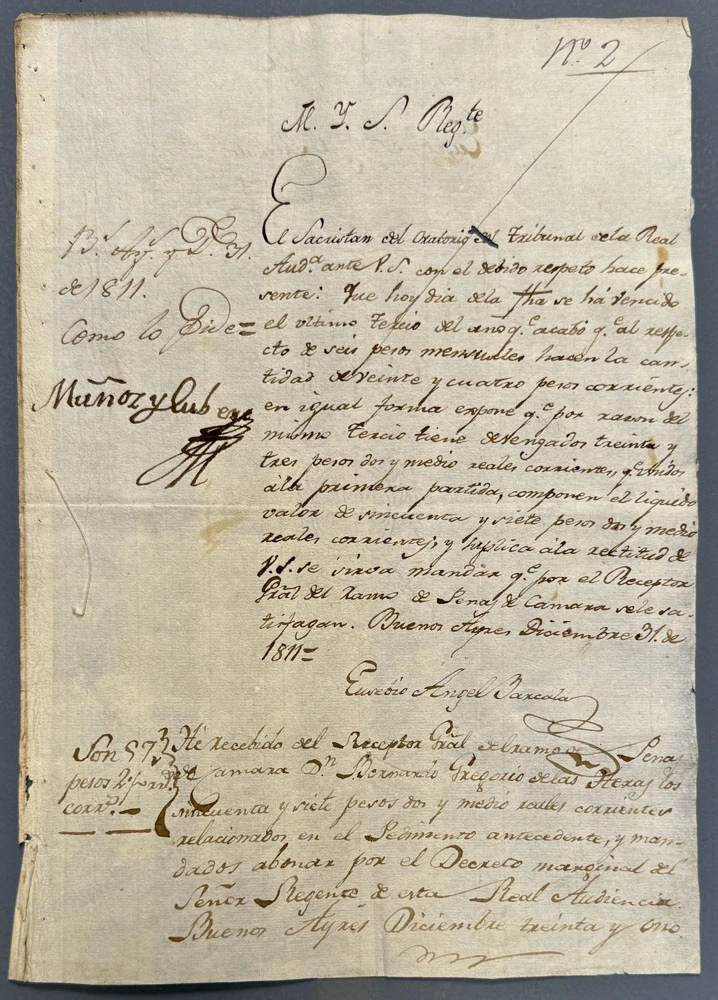 Nº 2
M. Y. S. Reg.te
El Sacristan del Oratorio del Tribunal dela Real
Aud.a ante V.S. con el debido respeto hace pre-
sente: Que hoy dia dela fha se há vencido
el vltimo Tercio del año q.e acabó q.e al respe-
cto de seis pesos mensuales hacen la can-
tidad de veinte y cuatro pesos corrientes:
en igual forma expone q.e por razon del
mismo Tercio tiene devengados treinta y
tres pesos dos y medio reales corrientes, q.e vnidos
ála primera partida, componen el liquido
valor de sincuenta y siete pesos dos y medio
reales corrientes, y suplica ála rectitud de
V.S. se sirva mandar q.e por el Receptor
Grãl del Ramo de Penas de Camara sele sa-
tisfagan. Buenos Ayres Diciembre 31. de
1811=
Eusebio Angel Barcala
B.s Ay.s y D.e 31.
de 1811.
Como lo Pide=
Muñoz y Cubero
Son 57
pesos 2½ r.s
corr.s
Hé recebido del Receptor Grãl del ramo de Penas
de Camara D.n Bernardo Gregorio de las Heras los
sincuenta y siete pesos dos y medio reales corrientes
relacionados en el Pedimento antecedente, y man-
dados abonar por el Decreto marginal del
Señor Regente de esta Real Audiencia.
Buenos Ayres Diciembre treinta y uno